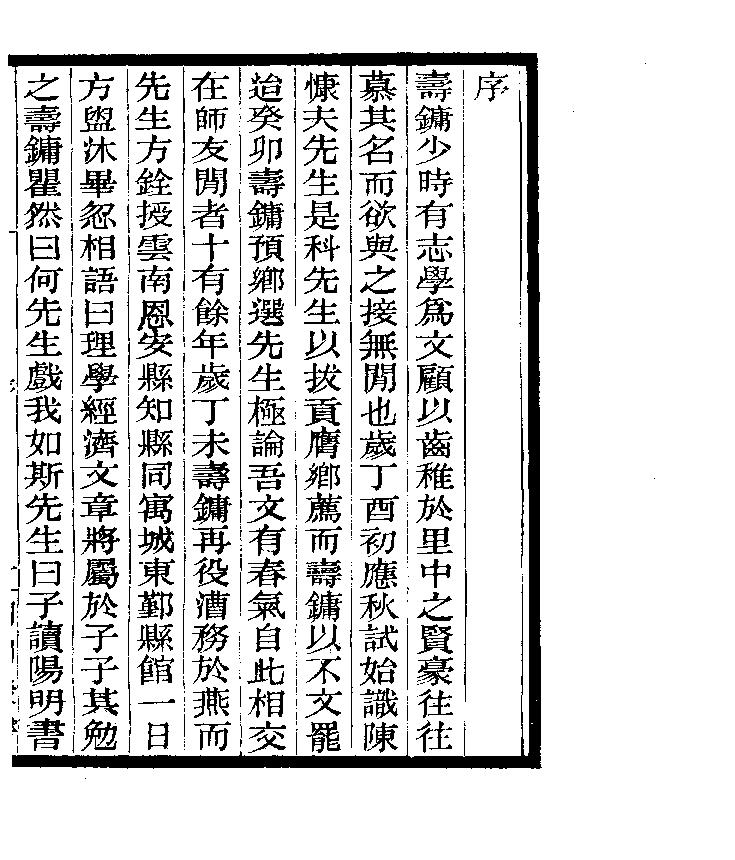 序
壽鏞少時有志學爲文顧以齒稚於里中之賢豪往往
慕其名而欲與之接無閒也歲丁酉初應秋試始識陳
慷夫先生是科先生以拔貢膺鄉薦而壽鏞以不文罷
迨癸卯壽鏞預鄉選先生極論吾文有春氣自此相交
在師友閒者十有餘年歲丁未壽鏞再役漕務於燕而
先生方銓授雲南恩安縣知縣同寓城東鄞縣館一日
方盥沐畢忽相語曰理學經濟文章將屬於子子其勉
之壽鏞瞿然曰何先生戲我如斯先生曰子讀陽明書